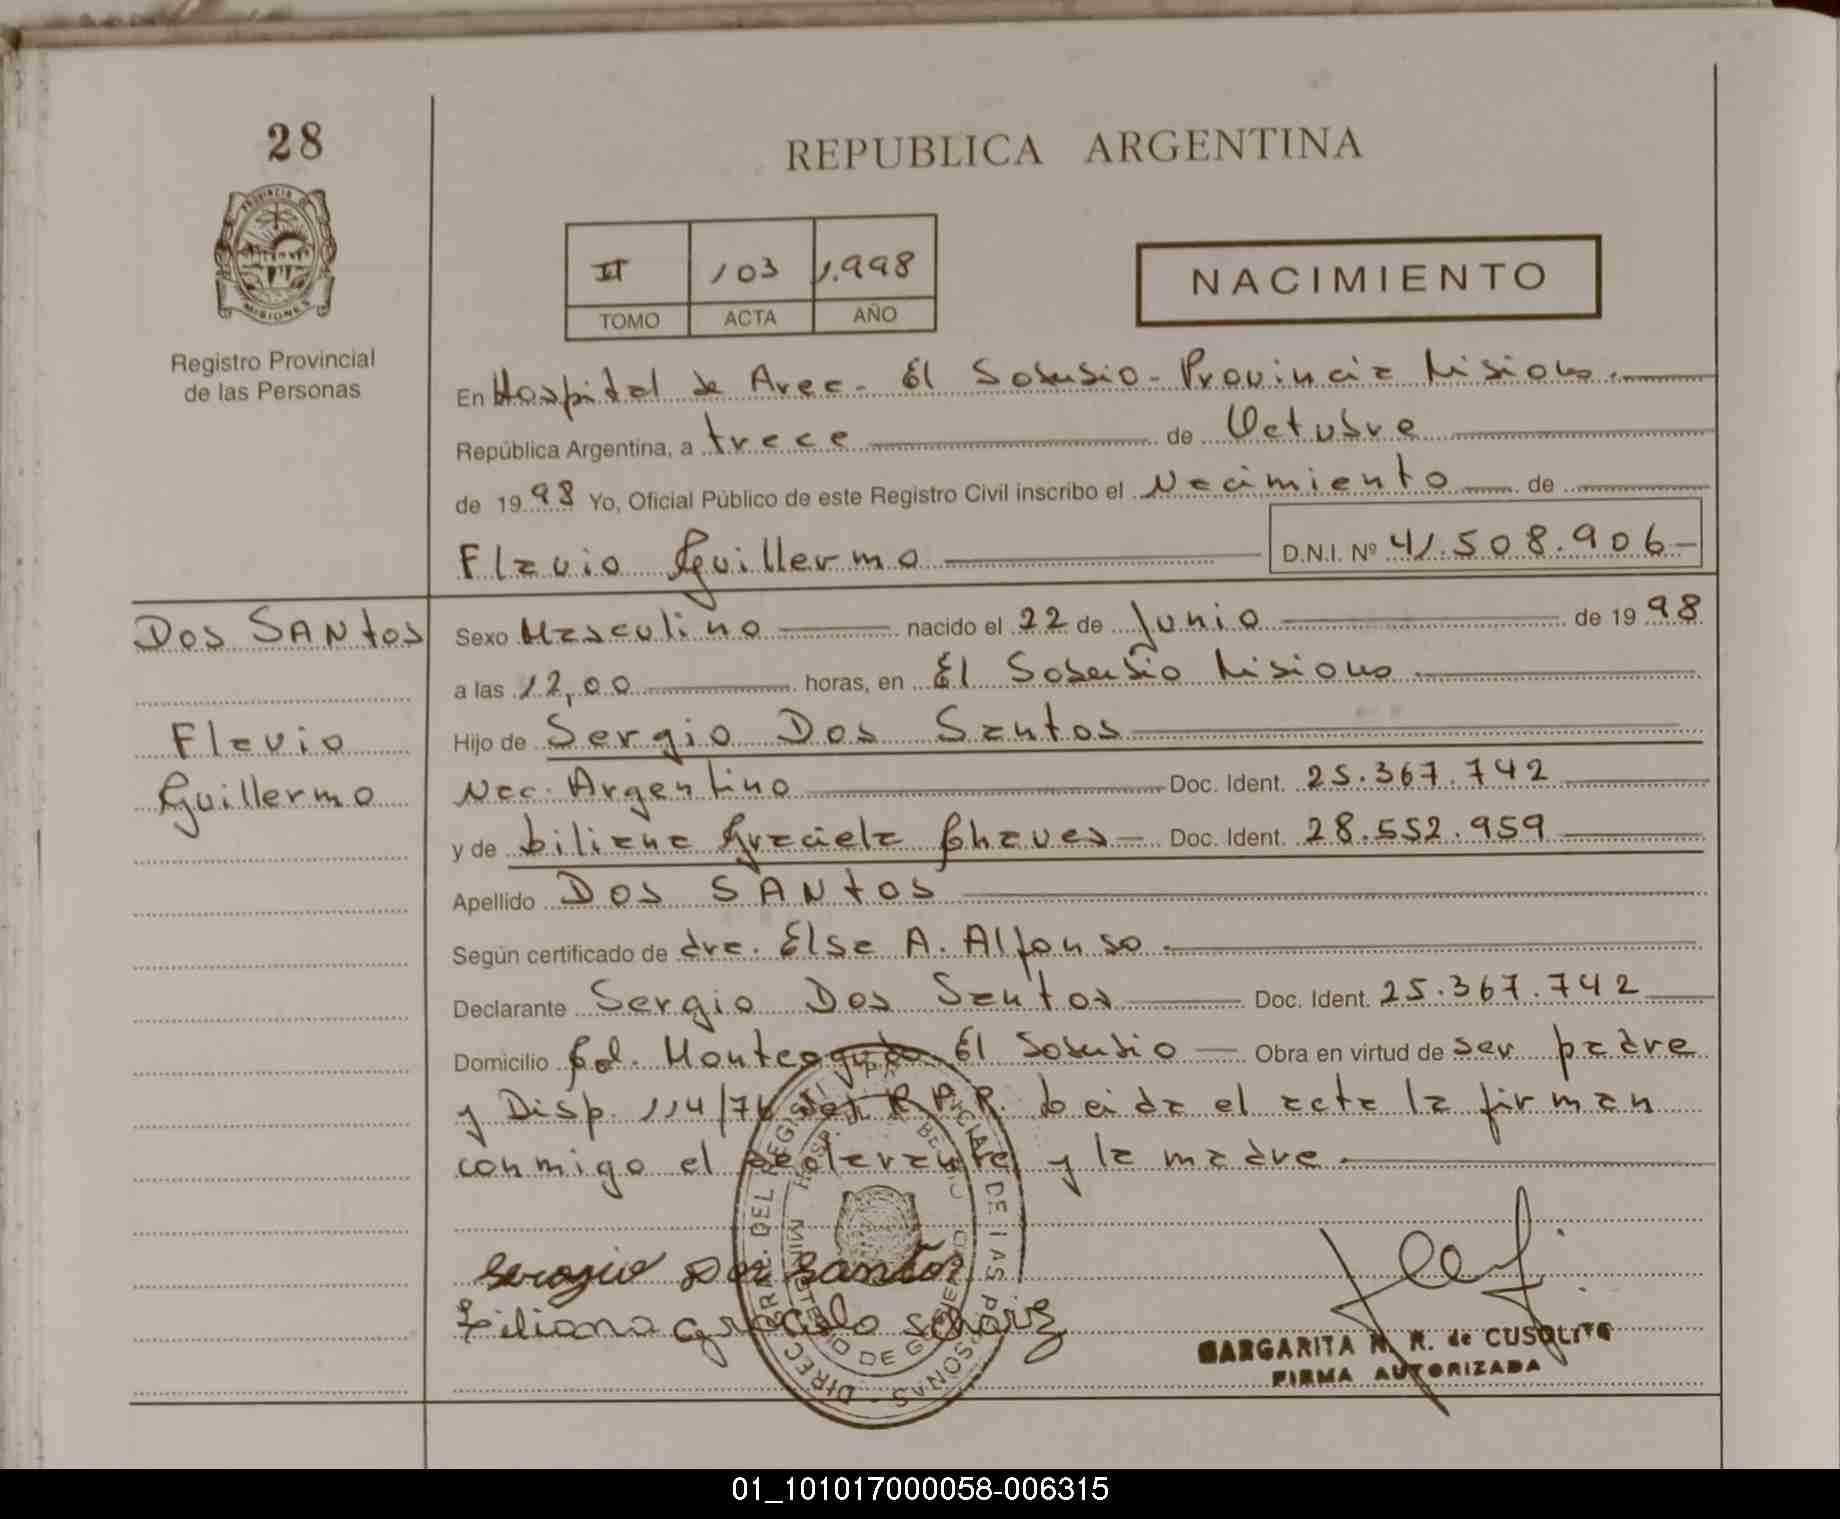 28
REPUBLICA ARGENTINA
PROVINCIA DE
MISIONES
Registro Provincial
de las Personas
II 103 1.998
TOMO ACTA AÑO
NACIMIENTO
En Hospital de Area - El Soberbio - Provincia Misiones.
República Argentina, a trece de Octubre
de 1998 Yo, Oficial Público de este Registro Civil inscribo el Nacimiento de
Flavio Guillermo D.N.I. Nº 41.508.906-
Dos SANtos
Flavio
Guillermo
Sexo Masculino nacido el 22 de Junio de 1998
a las 12,00 horas, en El Soberbio Misiones
Hijo de Sergio Dos Santos
Nac. Argentino Doc. Ident. 25.367.742
y de Liliana Graciela Chaves - Doc. Ident. 28.552.959
Apellido Dos SANtos
Según certificado de dra. Elsa A. Alfonso.
Declarante Sergio Dos Santos Doc. Ident. 25.367.742
Domicilio Col. Monteagudo El Soberbio Obra en virtud de ser padre
y Disp. 114/76 del R.P.P. Leida el acta la firman
conmigo el declarante y la madre.
Sergio Dos Santos
Liliana
MARGARITA N. R. de CUSOLITO
FIRMA AUTORIZADA
DIREC. GRAL. DEL REGISTRO PROVINCIAL DE LAS PERSONAS
MINISTERIO DE GOBIERNO
01_101017000058-006315